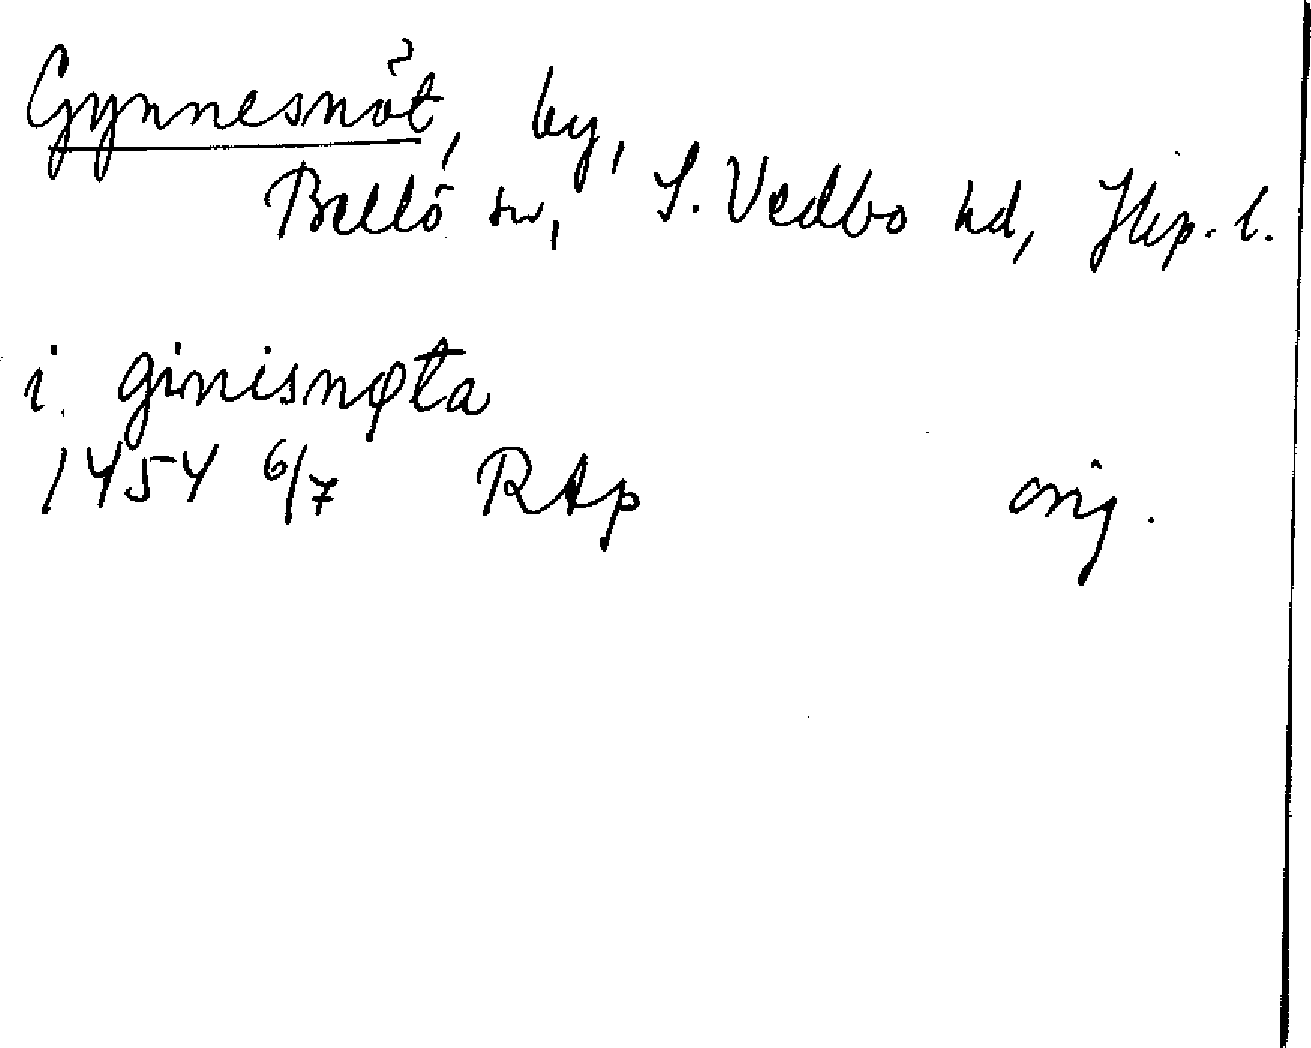 Gynnesnöt, by,
Bellö sn, S. Vedbo hd, Jkp. l.
i ginisnøta
1454 6/7 RAp orig.